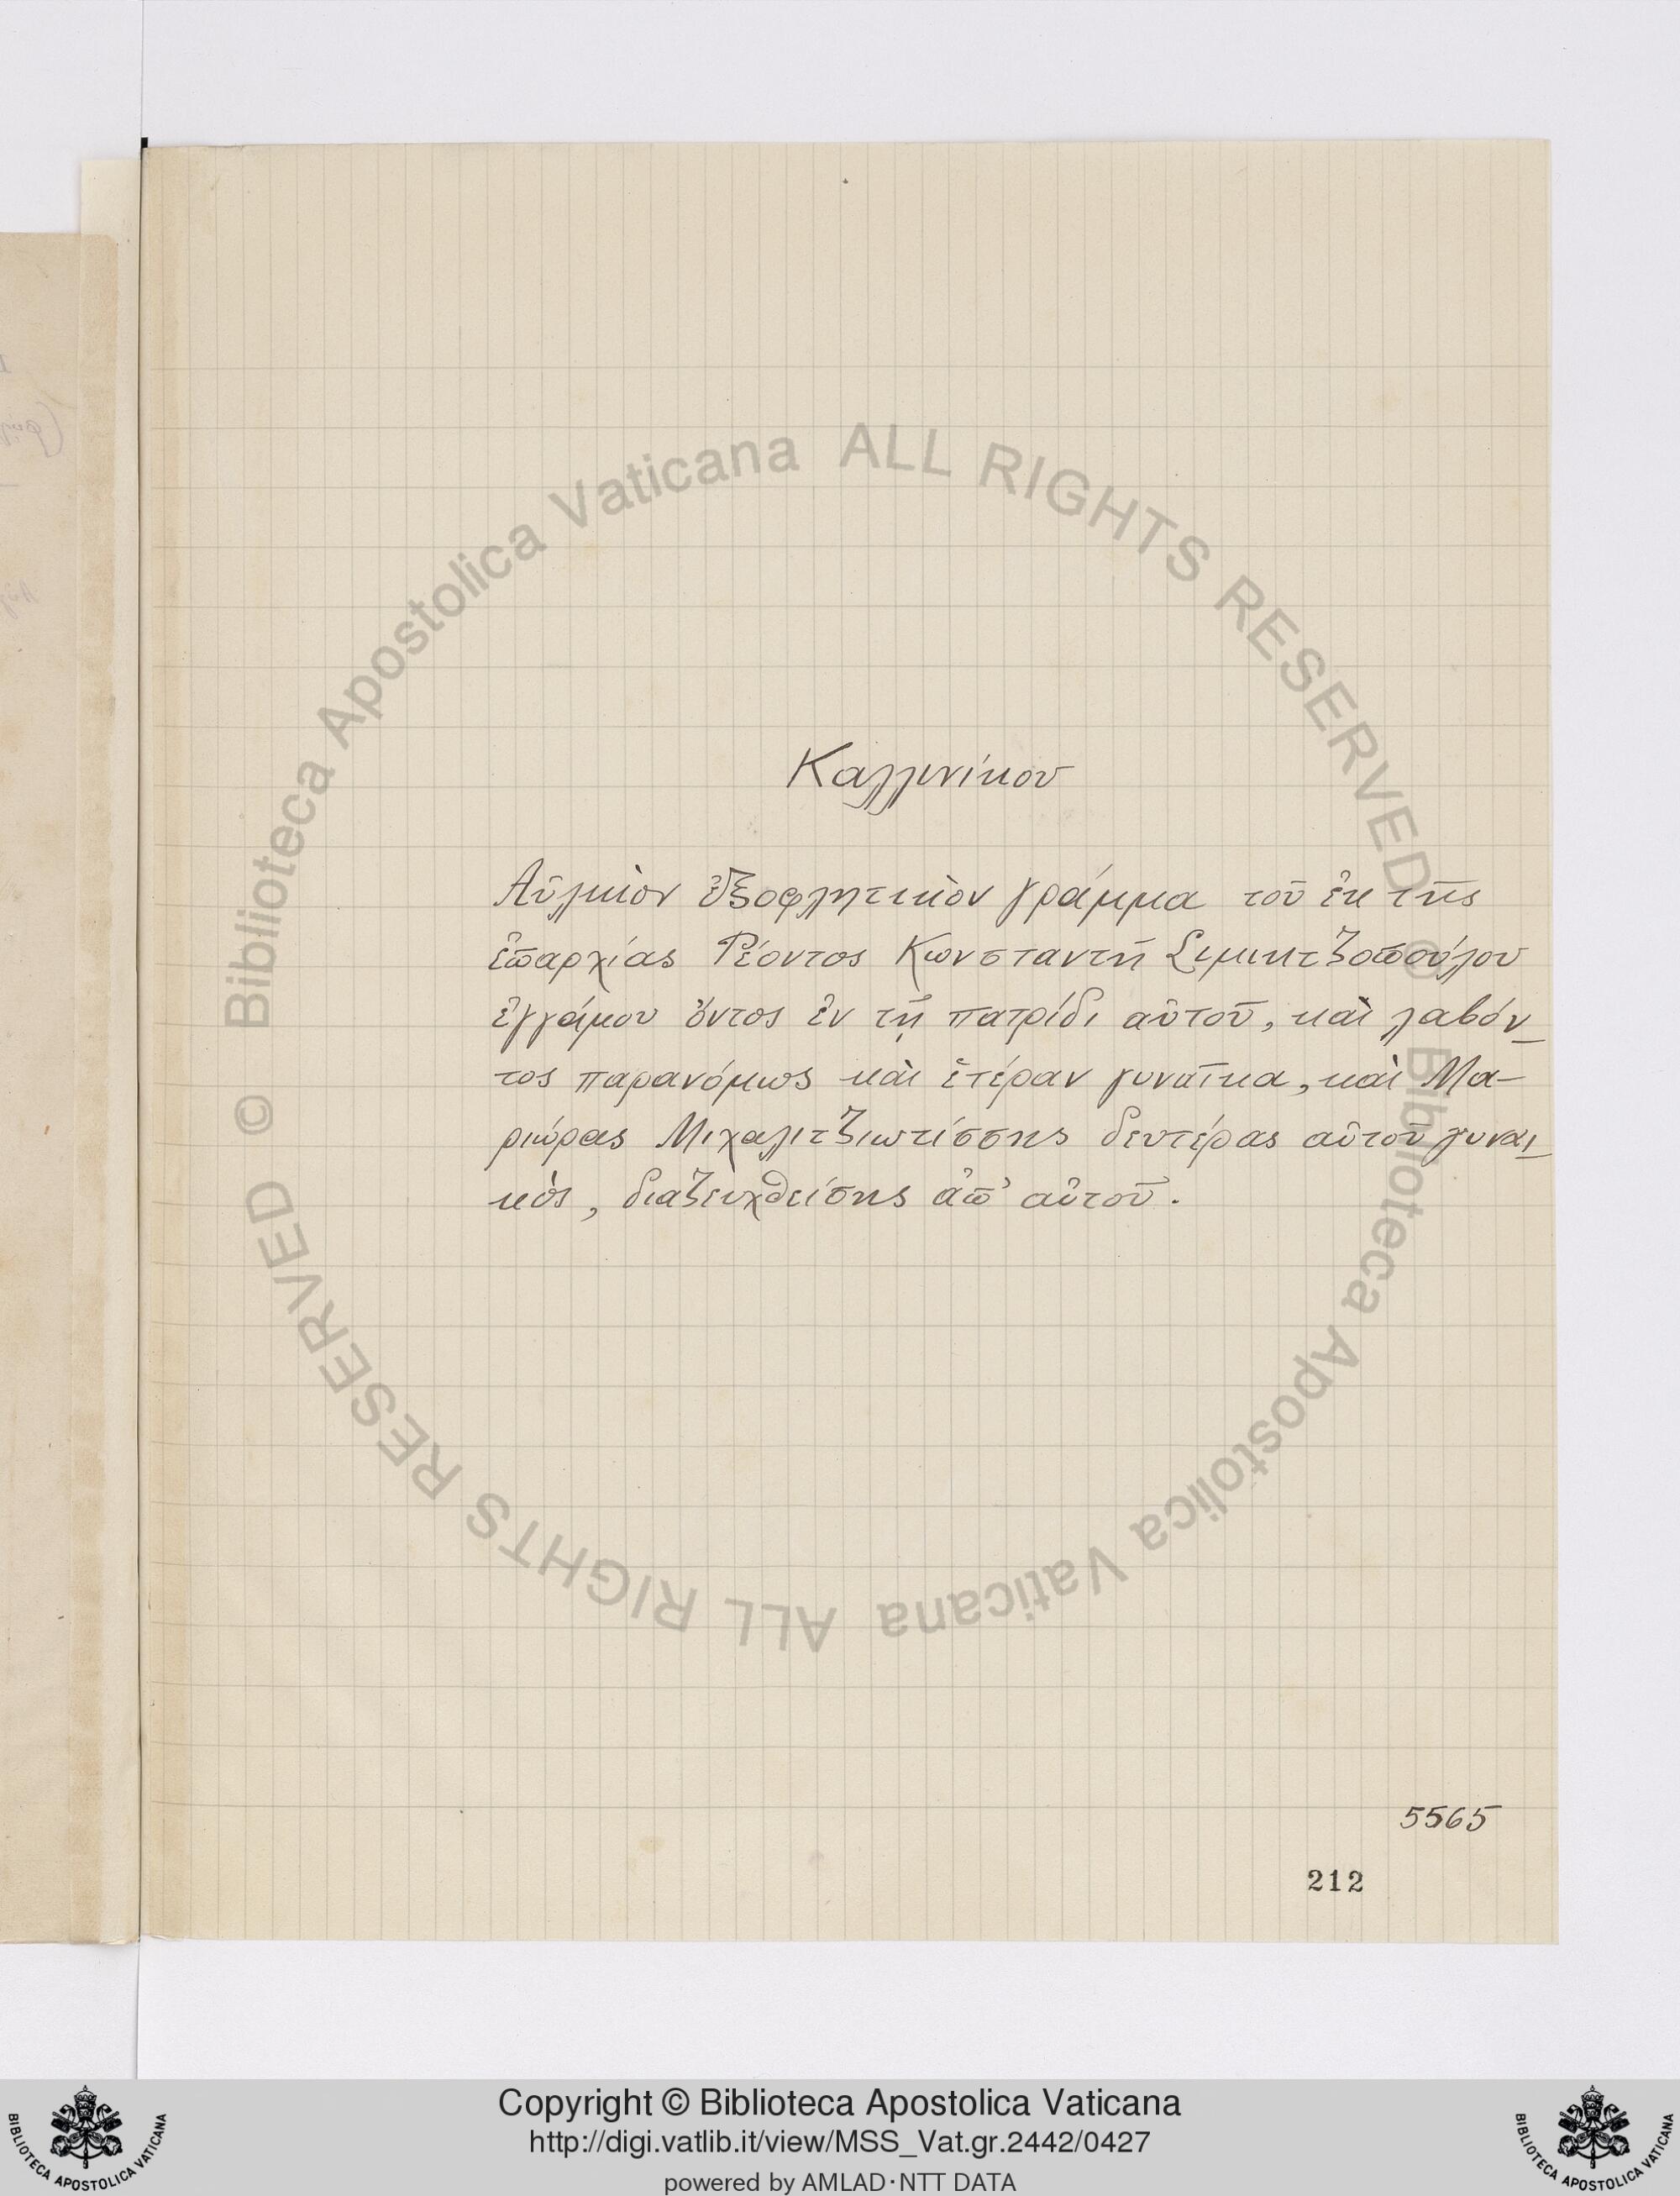 Καλλινίκου
Αὐλικὸν ἐξοφλητικὸν γράμμα τοῦ ἐκ τῆς
ἐπαρχίας Ῥέοντος Κωνσταντῆ Σιμιητζοπούλου
ἐγγάμου ὄντος ἐν τῇ πατρίδι αὐτοῦ, καὶ λαβόν_
τος παρανόμως καὶ ἑτέραν γυναῖκα, καὶ Μα-
ριώρας Μιχαλιτζιωτίσσης δευτέρας αὐτοῦ γυναι_
κὸς, διαζευχθείσης ἀπ' αὐτοῦ.
5565
212
Biblioteca Apostolica Vaticana ALL RIGHTS RESERVED ©
Biblioteca Apostolica Vaticana ALL RIGHTS RESERVED ©
Copyright © Biblioteca Apostolica Vaticana
http://digi.vatlib.it/view/MSS_Vat.gr.2442/0427
powered by AMLAD·NTT DATA
BIBLIOTECA APOSTOLICA VATICANA
BIBLIOTECA APOSTOLICA VATICANA